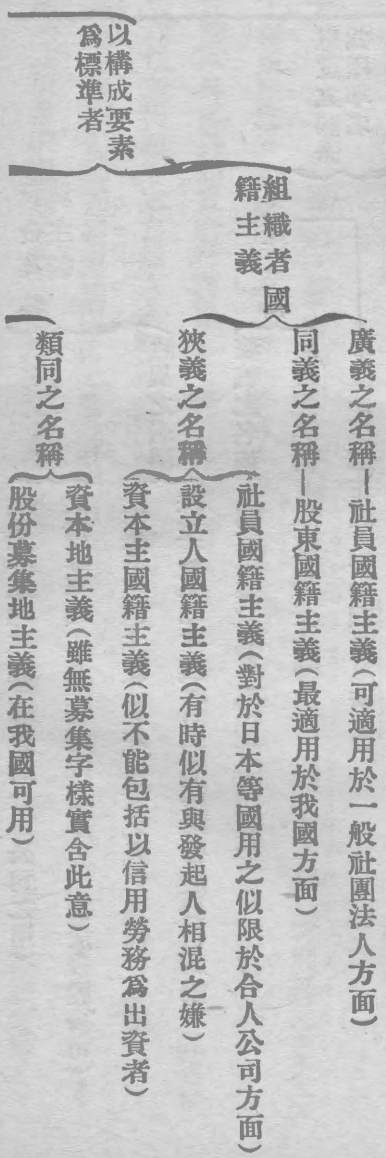 以構成要素
爲標準者
組織者國
籍主義
廣義之名稱—社員國籍主義(可適用於一般社團法人方面)
同義之名稱—股東國籍主義(最適用於我國方面)
狹義之名稱
社員國籍主義(對於日本等國用之似限於合人公司方面)
設立人國籍主義(有時似有與發起人相混之嫌)
資本主國籍主義(似不能包括以信用勞務爲出資者)
類同之名稱
資本地主義(雖無募集字樣實含此意)
股份募集地主義(在我國可用)